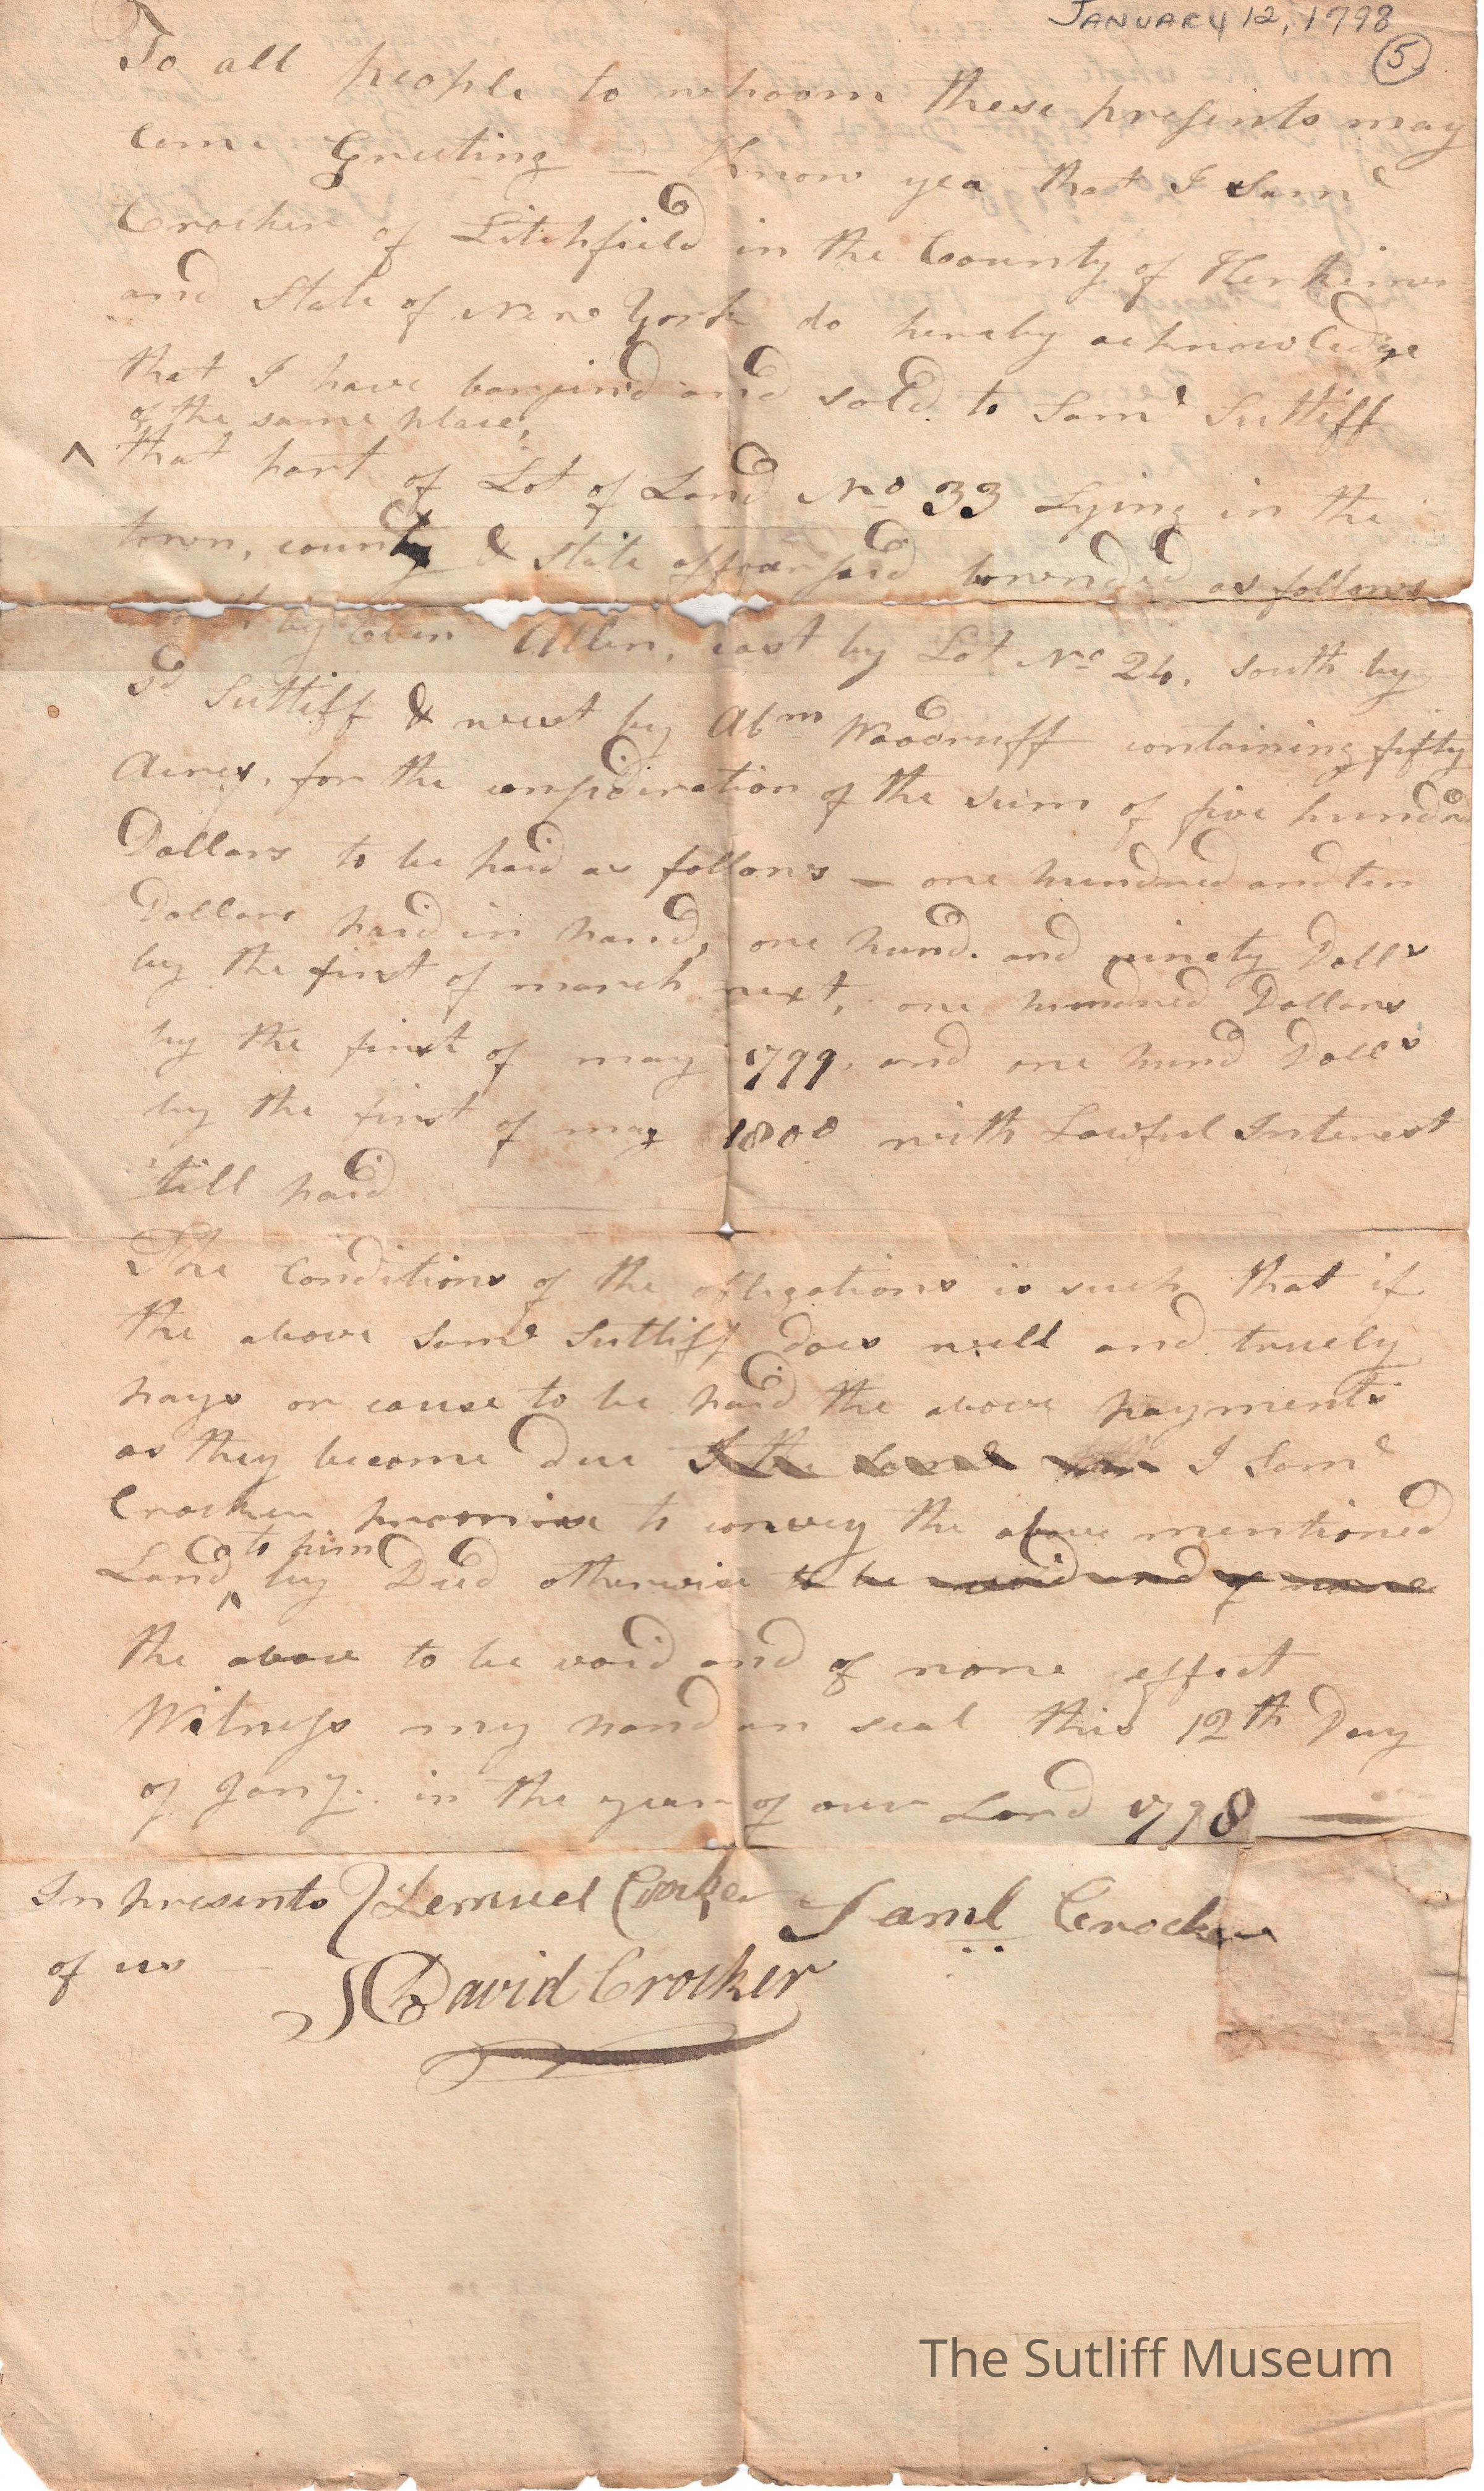 JANUARY 12, 1798
5
To all people to whoom these presents may
Come Greeting — Know yea that I Saml
Crocker of Litchfield in the County of Herkimer
and State of New York do hereby acknowledge
that I have bargind and sold to Saml Sutliff
of the same place,
^ that part of Lot of Land No 33 Lying in the
town, county & State afforesaid bownded as follows
by Eben Allin, east by Lot No 24, south by
sd Sutliff & west by Abm Woodruff containing fifty
Acres, for the consideration of the sum of five hundred
Dollars to be paid as follows — one hundred and ten
Dollars paid in hand, one hund. and ninety Dolls
by the first of march next, one hundred Dollars
by the first of may 1799, and one hund Dolls
by the first of may 1800 with Lawful Interest
till paid
The Conditions of the obligations is such that if
the above Saml Sutliff does well and truely
pays or cause to be paid the above payments
as they become due I the Saml I Saml
Crocker promise to convey the above mentioned
to him
Land ^ by Deed otherwise to be void and of none
the above to be void and of none effect
Witness my hand an seal this 12th Day
of Jany. in the year of our Lord 1798
In presents Lemuel Crocker Saml Crocker
of us David Crocker
The Sutliff Museum